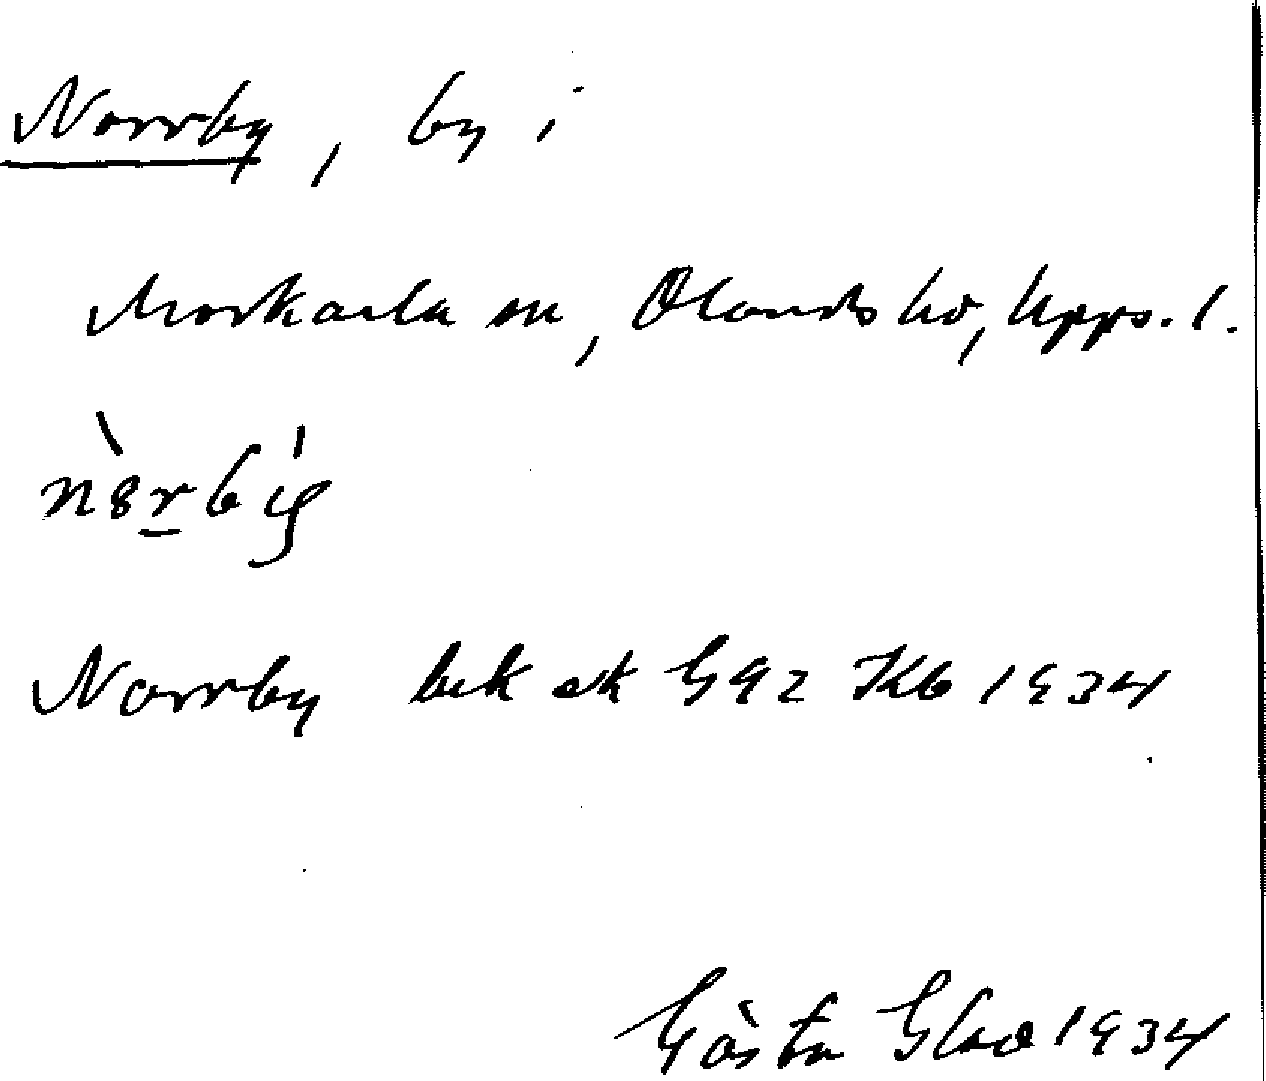 Norrby, by i
Morkarla sn, Olands hd, Upps. l.
Norrby bek ek G 92 Kb 1934
Gösta 1934